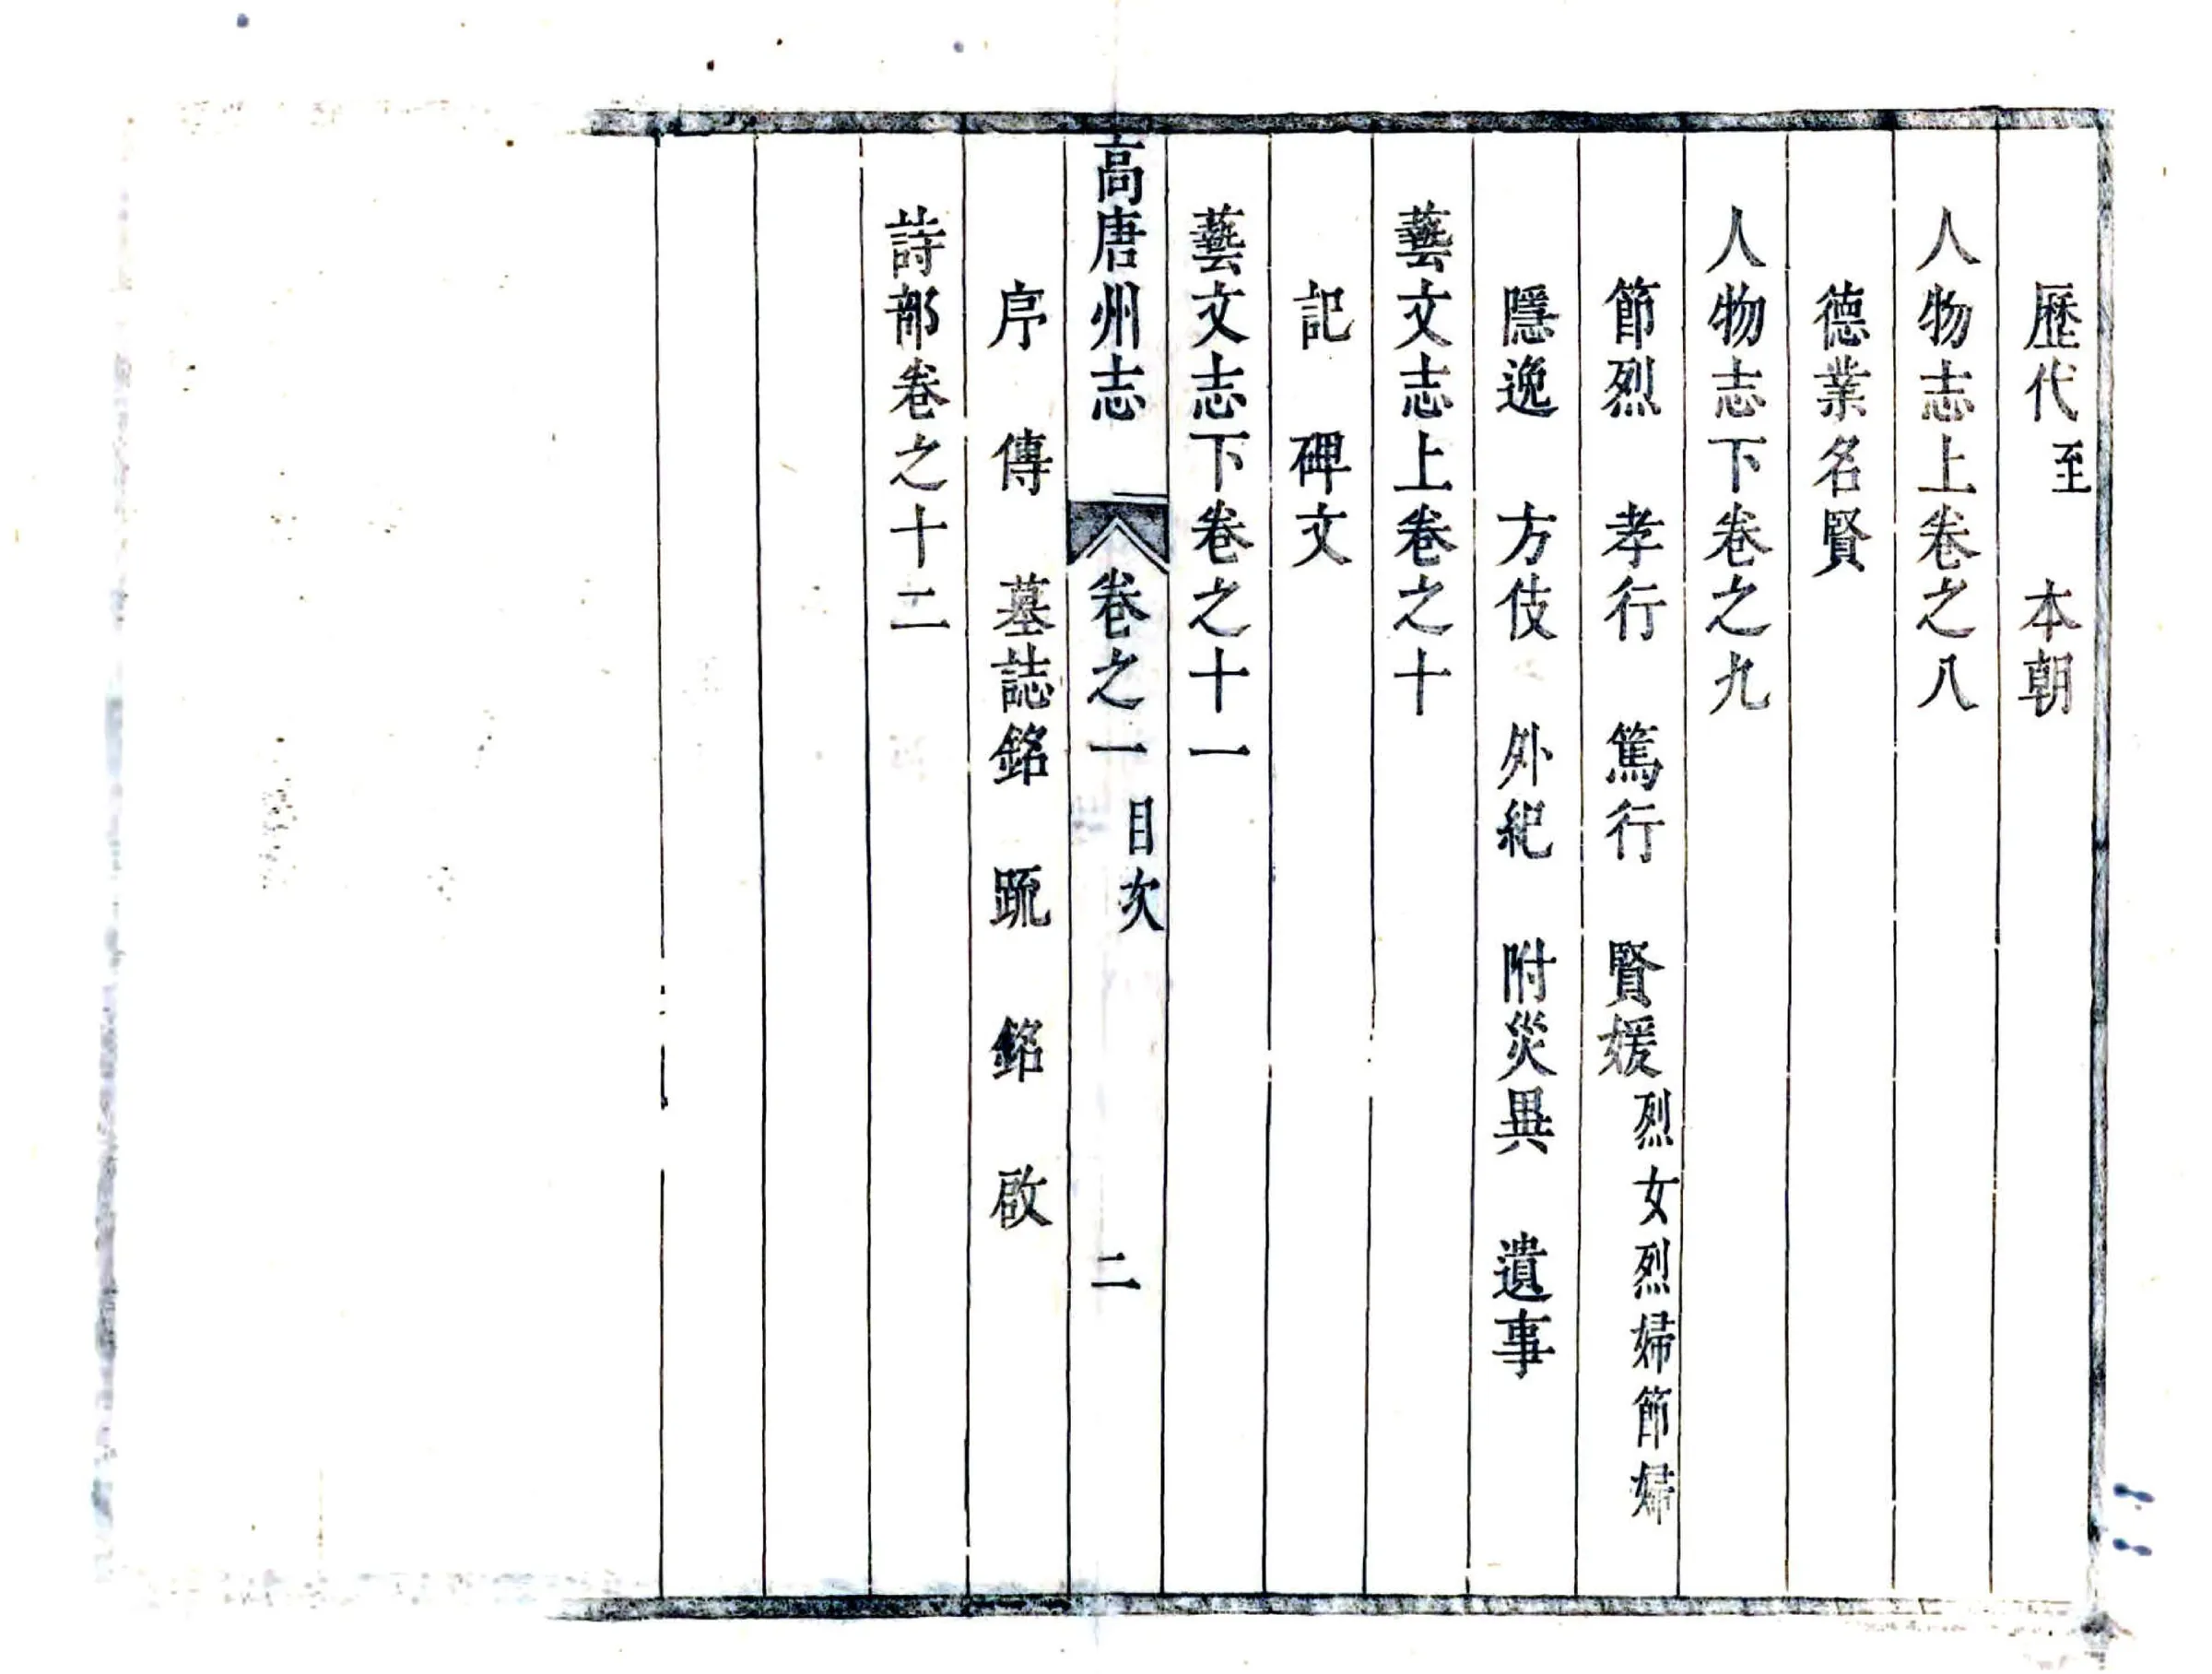 歷代至　本朝
人物志上卷之八
德業名賢
人物志下卷之九
節烈　孝行　篤行　賢媛烈女烈婦節婦
隱逸　方伎　外紀　附災異　遺事
藝文志上卷之十
記　碑文
藝文志下卷之十一
高唐州志　卷之一　目次　二
序　傳　墓誌銘　䟽　銘　啟
詩部卷之十二